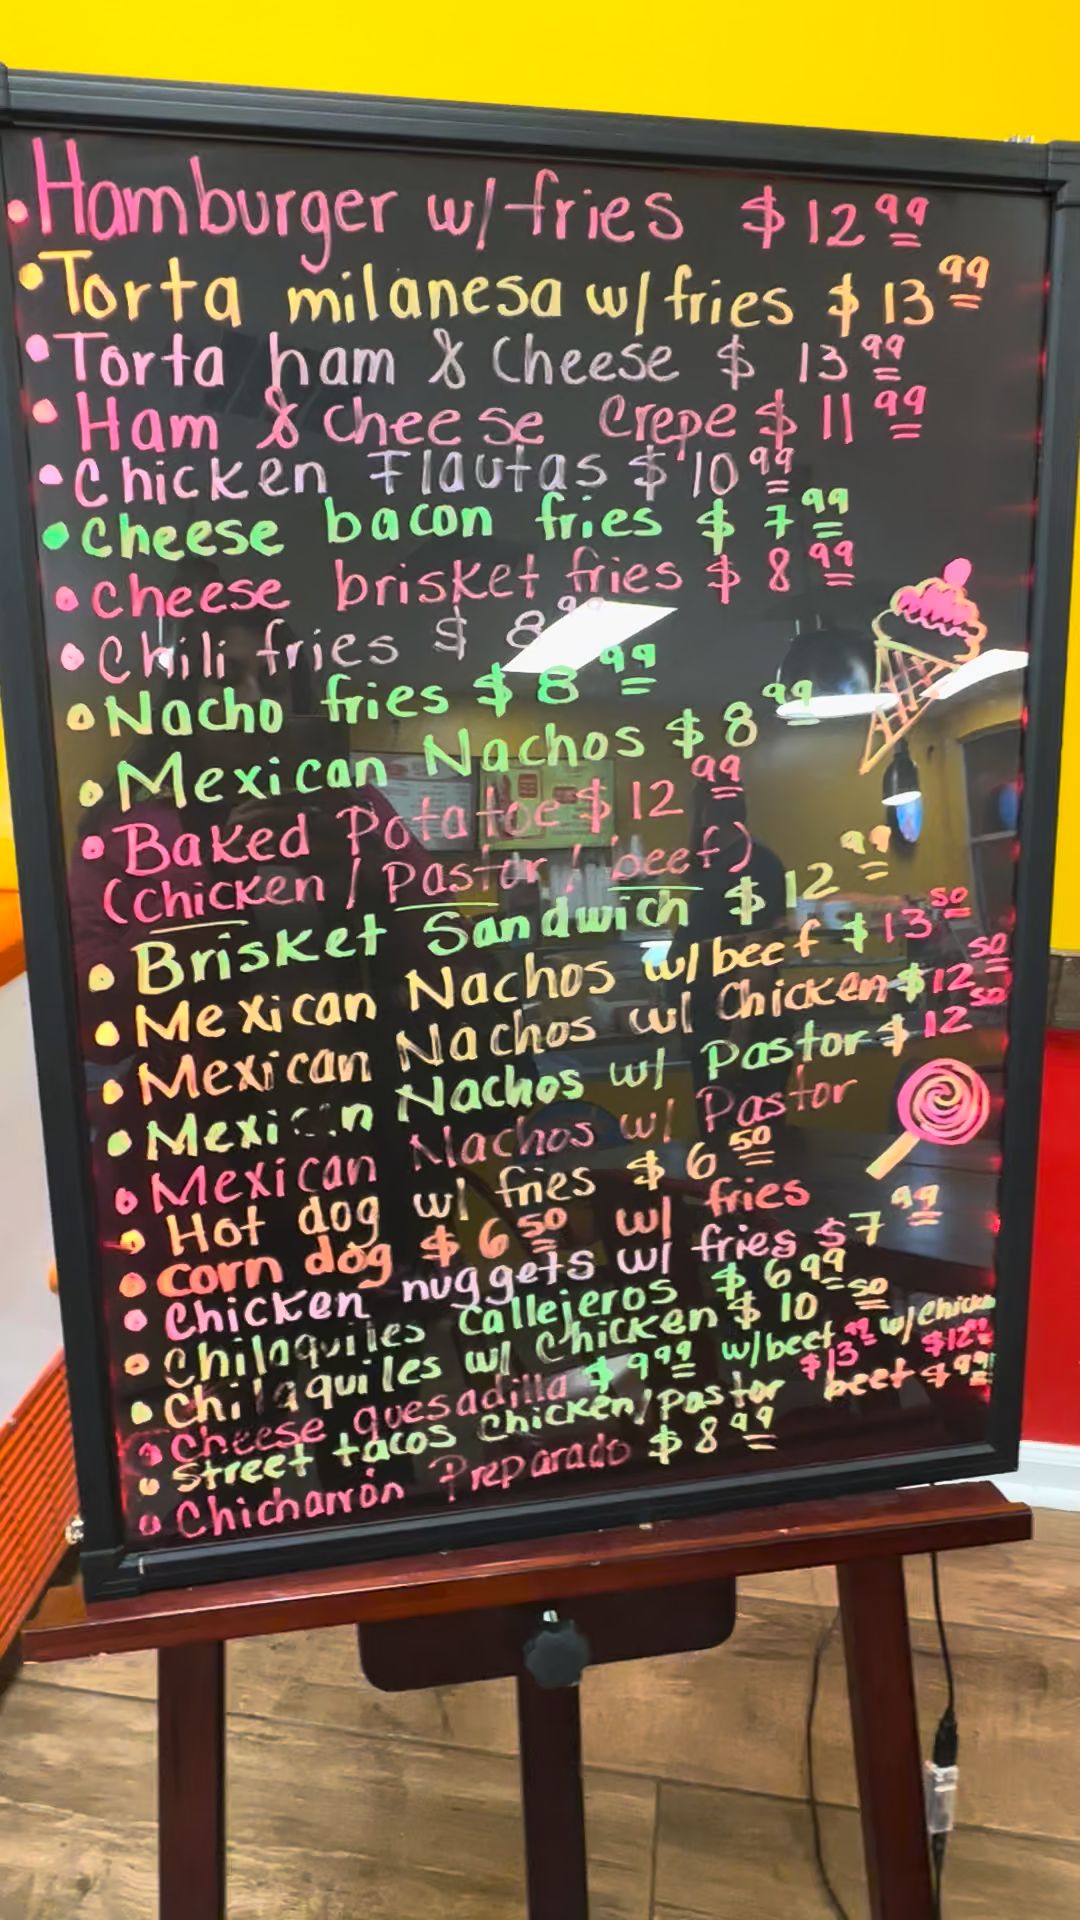 Hamburger w/ fries $ 12 99
Torta milanesa w/ fries $ 13 99
Torta ham & Cheese $ 13 99
Ham & cheese Crepe $ 11 99
Chicken Flautas $ 10 99
Cheese bacon fries $ 7 99
Cheese brisket fries $ 8 99
Chili fries $ 8 99
Nacho fries $ 8 99
Mexican Nachos $ 8 99
Baked Potatoe $ 12 99
(chicken / Pastor / beef)
Brisket Sandwich $ 12 99
Mexican Nachos w/ beef $ 13 50
Mexican Nachos w/ Chicken $ 12 50
Mexican Nachos w/ Pastor $ 12 50
Mexican Nachos w/ Pastor
Hot dog w/ fries $ 6 50
Corn dog $ 6 50 w/ fries
Chicken nuggets w/ fries $ 7 99
Chilaquiles Callejeros $ 6 99
Chilaquiles w/ Chicken $ 10 50
Cheese quesadilla $ 9 99 w/beef $13 99 w/chicken $12 99
Street tacos Chicken/Pastor beef $ 9 99
Chicharrón Preparado $ 8 99